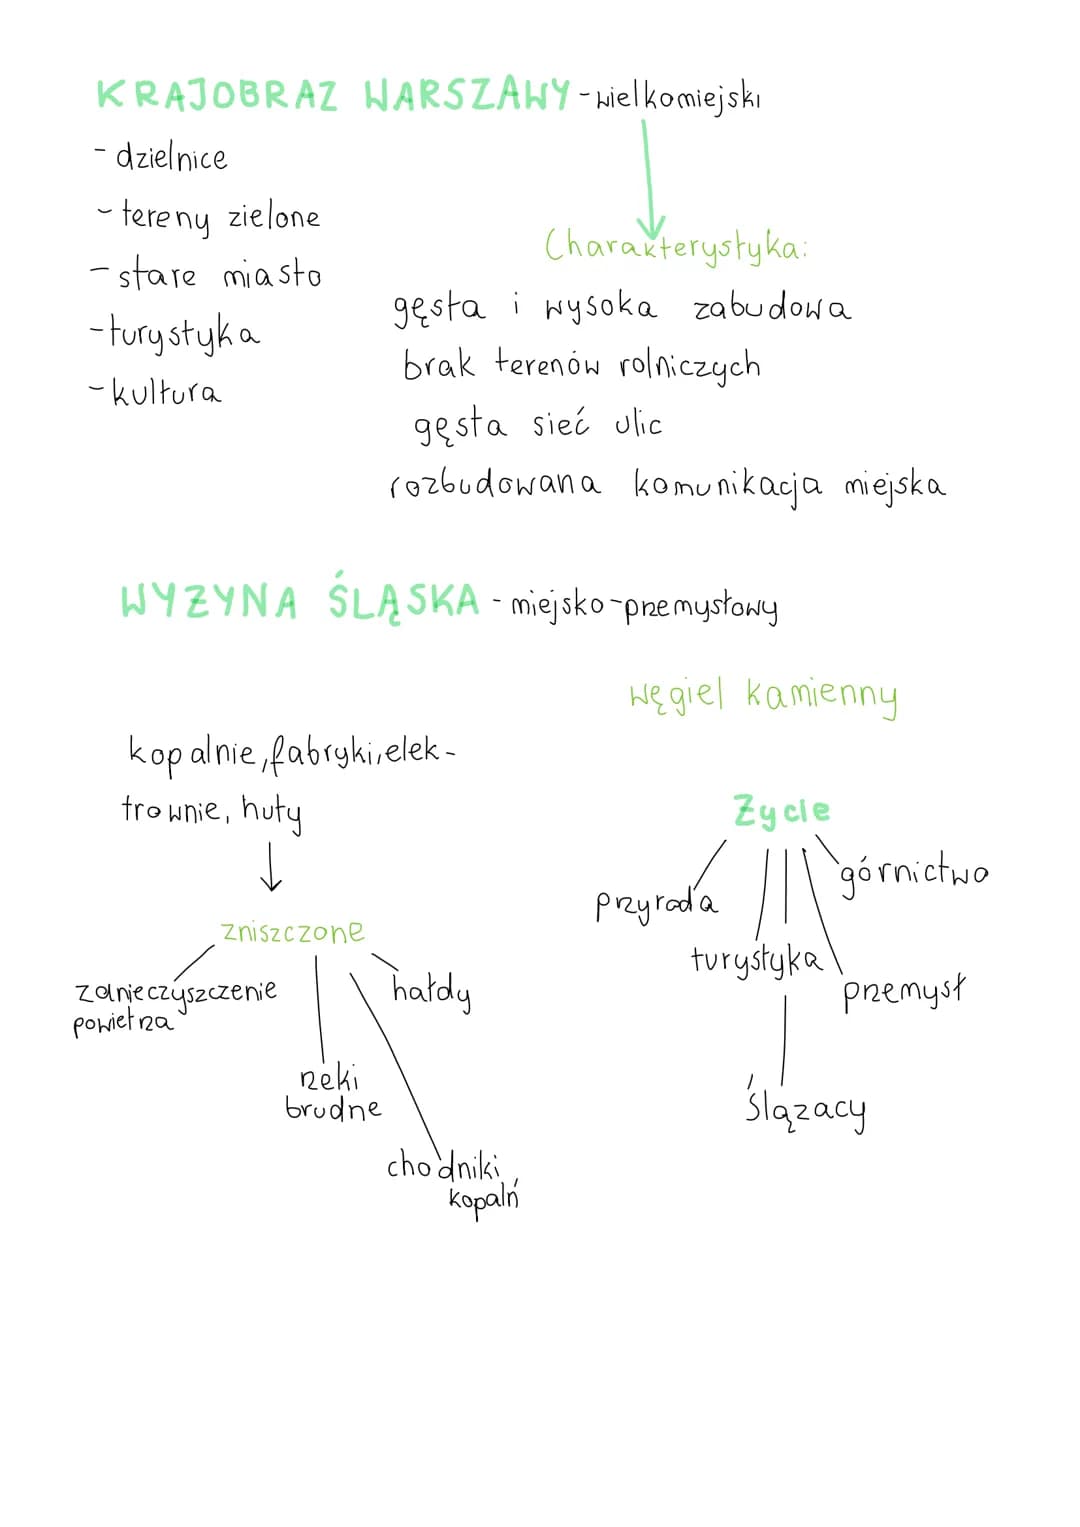 KRAJOBRAZ WARSZAWY - wielkomiejski
- dzielnice
- tereny zielone
- stare miasto
- turystyka
- kultura
Charakterystyka:
gęsta i wysoka zabudowa
brak terenów rolniczych
gęsta sieć ulic
rozbudowana komunikacja miejska
WYŻYNA ŚLĄSKA - miejsko-przemysłowy
węgiel kamienny
kopalnie, fabryki, elek-
trownie, huty
zniszczone
zanieczyszczenie
powietrza
rzeki
brudne
chodniki
kopalń
hałdy
Życie
przyroda
turystyka
Ślązacy
przemysł
górnictwo